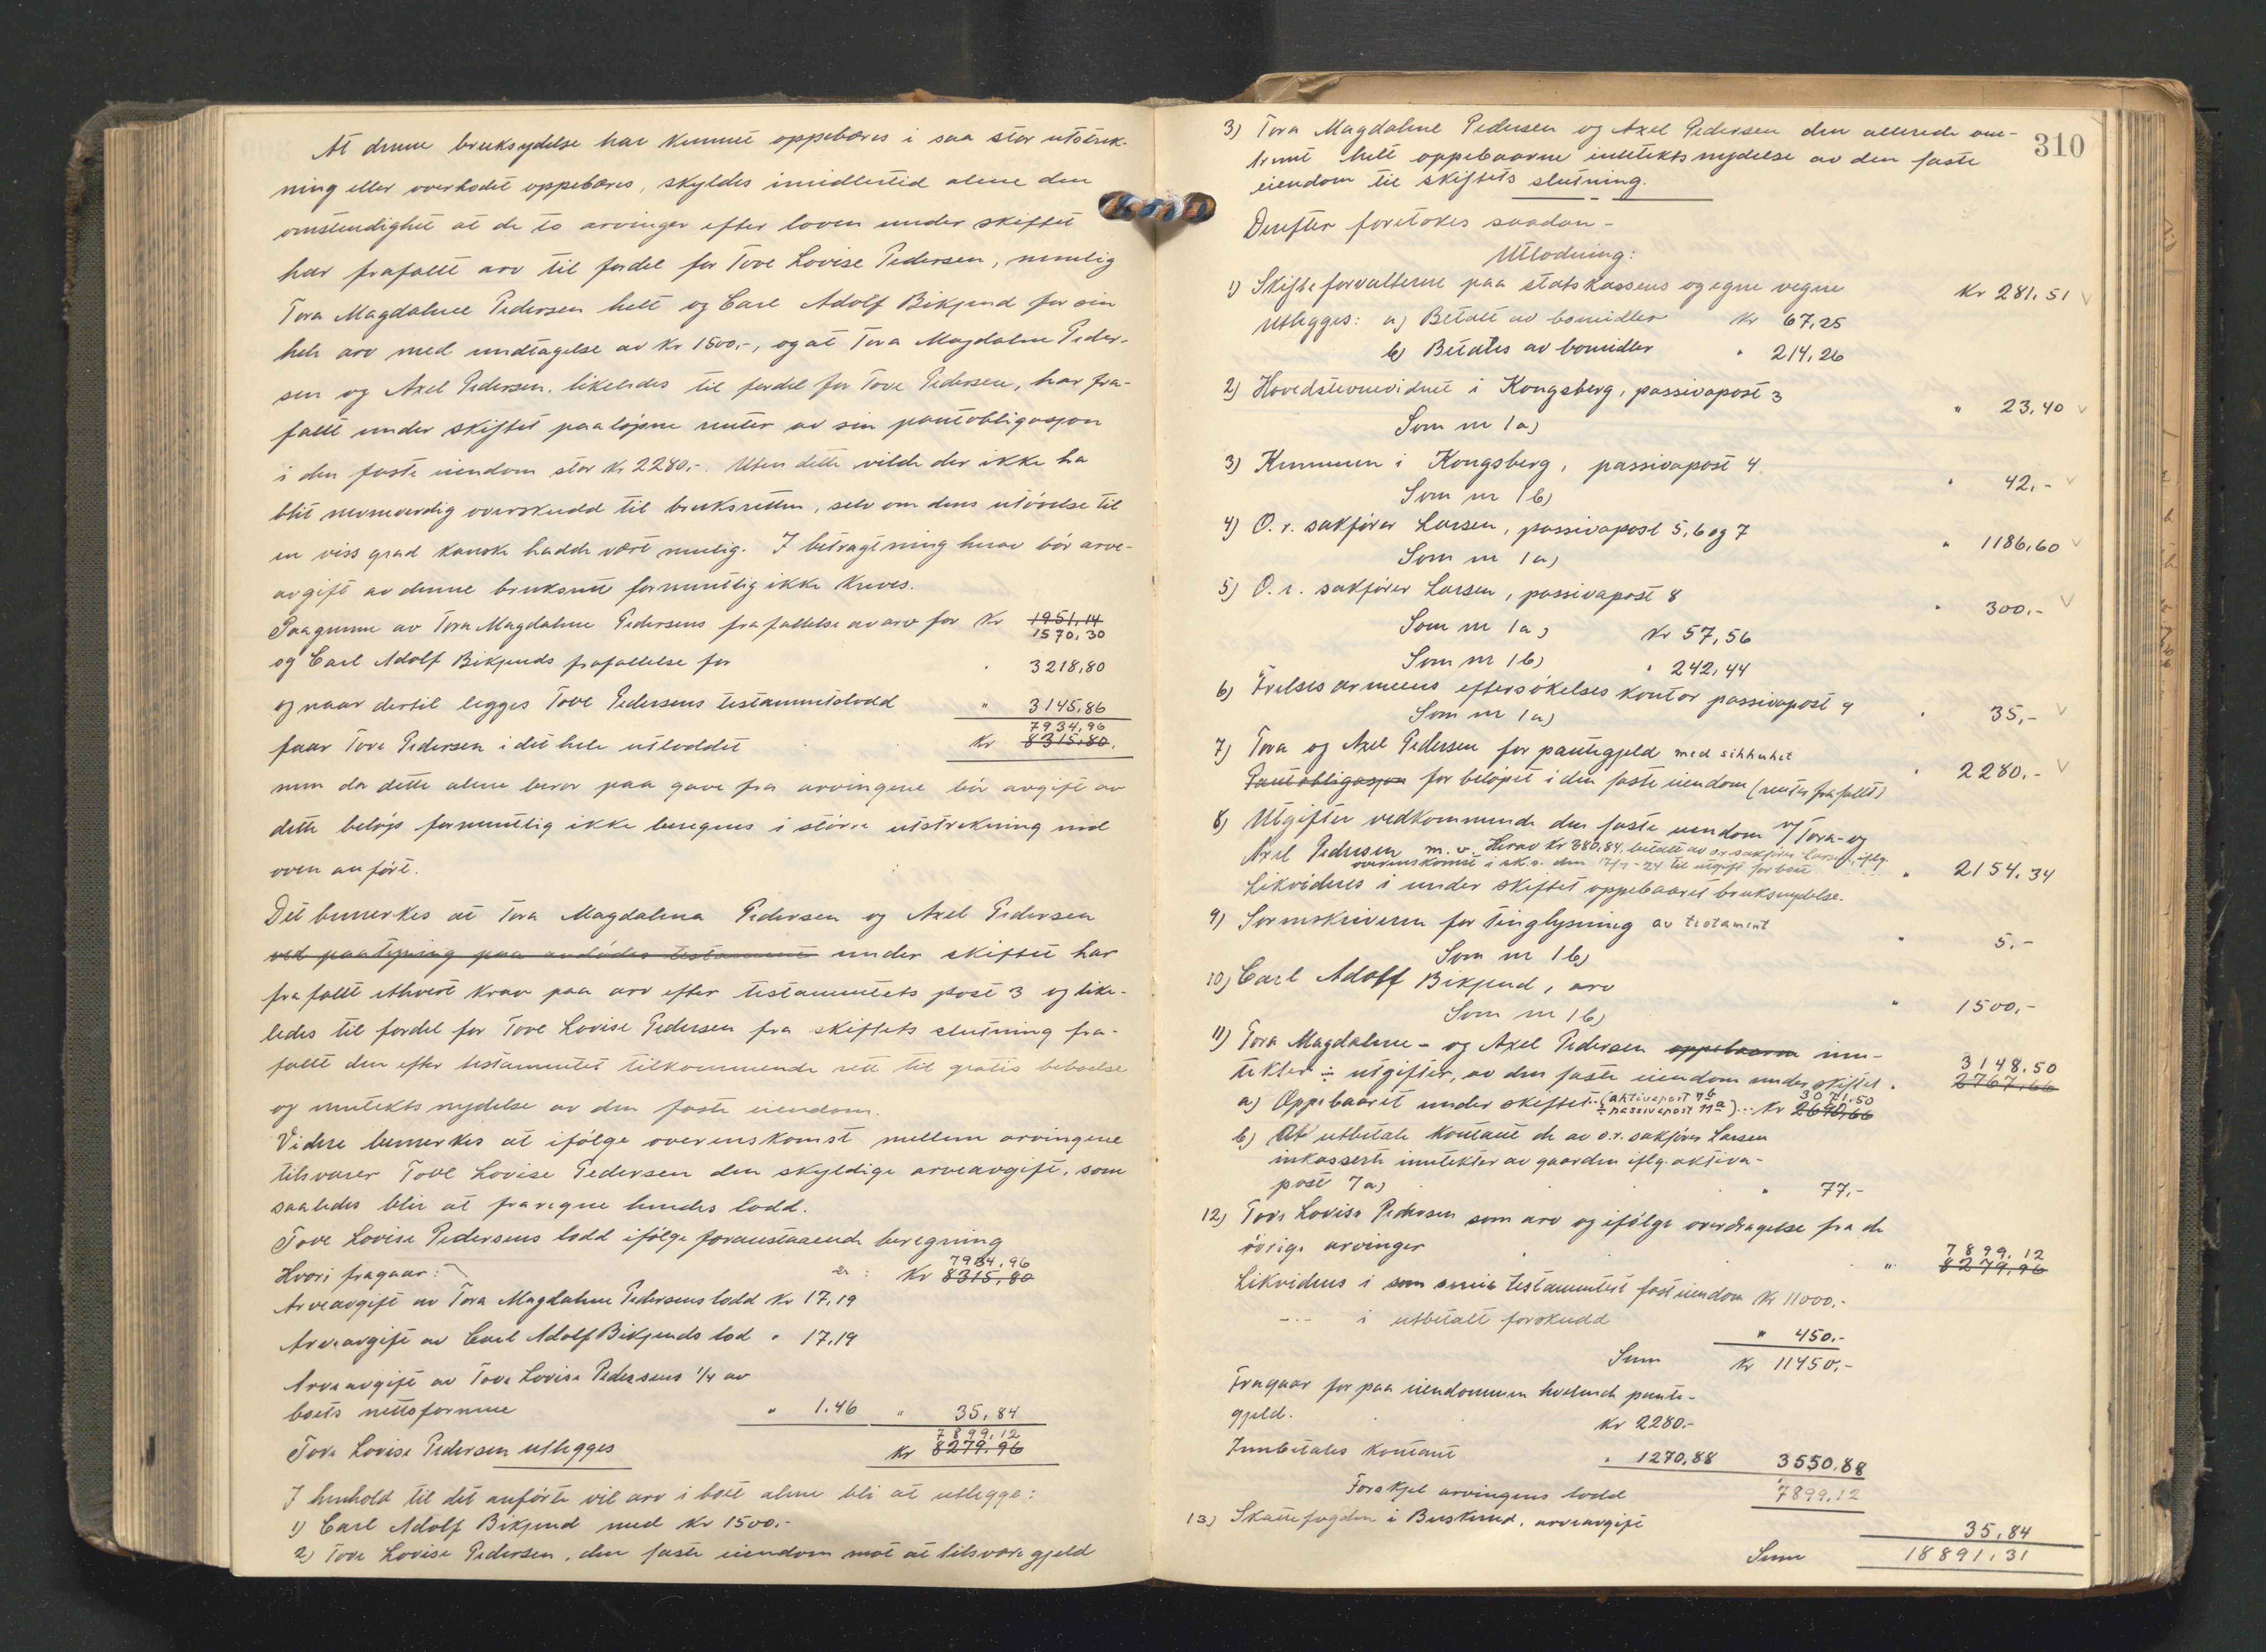 At denne bruksydelse har kunnet oppebæres i saa stor utstrek-
ning eller overhodet oppebæres, skyldes imidlertid alene den
omstendighet at de to arvinger efter loven under skiftet
har frafaldt arv til fordel for Tove Lovise Pedersen, nemlig
Tora Magdalene Pedersen helt og Carl Adolf Bikjend for sin
hele arv med undtagelse av Kr 1500,-, og at Tora Magdalene Peder-
sen og Axel Pedersen, likeledes til fordel for Tove Pedersen, har fra-
faldt under skiftet paaløpne renter av sin pantobligasjon
i den faste eiendom stor Kr 2280,-. Uten dette vilde der ikke ha
blit nevneverdig overskudd til bruksretten, selv om dens utøvelse til
en viss grad kanske hadde vært mulig. I betragtning herav bør arve-
avgift av denne bruksrett formentlig ikke kreves.
Paa grunn av Tora Magdalene Pedersens frafallelse av arv for Kr 1951,14
1570,30
og Carl Adolf Bikjends frafallelse for " 3218,80
og naar dertil legges Tove Pedersens testamentslodd " 3145,86
7934,96
faar Tove Pedersen i det hele utloddet Kr 8315,80.
men da dette alene beror paa gave fra arvingene bør avgift av
dette beløp formentlig ikke beregnes i større utstrekning end
oven anført.
Det bemerkes at Tora Magdalena Pedersen og Axel Pedersen
ved paategning paa avdødes testament under skiftet har
frafallt ethvert krav paa arv efter testamentets post 3 og like-
ledes til fordel for Tove Lovise Pedersen fra skiftets slutning fra-
fallt den efter testamentet tilkommende rett til gratis beboelse
og inntektsnydelse av den faste eiendom.
Videre bemerkes at ifølge overenskomst mellem arvingene
tilsvarer Tove Lovise Pedersen den skyldige arveavgift, som
saaledes blir at fraregne hendes lodd.
Tove Lovise Pedersens lodd ifølge foranstaaende beregning
7934,96
er : Kr 8315,80
Hvori fragaar:
Arveavgift av Tora Magdalene Pedersens lodd Kr 17,19
Arveavgift av Carl Adolf Bikjends lod " 17,19
Arveavgift av Tove Lovise Pedersens 1/4 av
boets nettoformue " 1.46 " 35,84
7899,12
Tove Lovise Pedersen utlegges Kr 8279,96
I henhold til det anførte vil arv i boet alene bli at utlegge:
1) Carl Adolf Bikjend med Kr 1500,-
2) Tove Lovise Pedersen, den faste eiendom mot at tilsvare gjeld
310
3) Tora Magdalene Pedersen og Axel Pedersen den allerede om-
trent helt oppebaarne inntektsnydelse av den faste
eiendom til skiftets slutning.
Derefter foretokes saadan -
Utlodning:
1) Skifteforvalteren paa statskassens og egne vegne Kr 281,51
Utlegges: a) Betalt av bomidler Kr 67,25
b) Betales av bomidler " 214,26
2) Hovedstevnevidnet i Kongsberg, passivapost 3 " 23,40
Som nr 1a)
3) Kemneren i Kongsberg, passivapost 4 " 42,-
Som nr 1b)
4) O. r. sakfører Larsen, passivapost 5, 6 og 7 " 1186,60
Som nr 1a)
5) O. r. sakfører Larsen, passivapost 8 " 300,-
Som nr 1a) Kr 57,56
Som nr 1b) " 242,44
6) Frelsesarmeens eftersøkelses kontor passivapost 9 " 35,-
Som nr 1a)
7) Tora og Axel Pedersen for pantegjeld med sikkerhet " 2280.-
Pantobligasjon for beløpet i den faste eiendom (renter frafallt)
8) Utgifter vedkommende den faste eiendom v/ Tora- og
Axel Pedersen m. v. Herav Kr 380,84 betalt av o.r. sakfører Larsen, iflg.
overenskomst i sk.s. den 17/7-24 til utgift for boet " 2154.34
Likvideres i under skiftet oppebaaret bruksnydelse.
9) Sorenskriveren for tinglysning av testament " 5.-
Som nr 1b)
10) Carl Adolf Bikjend, arv " 1500,-
Som nr 1b)
11) Tora Magdalene- og Axel Pedersen oppebaarne inn- 3148.50
tekter ÷ utgifter, av den faste eiendom under skiftet " 2767,66
a) Oppebaaret under skiftet (aktivapost 7b ÷ passivapost 11a) Kr 3071.50
2690,66
b) At utbetale kontant de av o.r. sakfører Larsen
inkasserte inntekter av gaarden iflg. aktiva-
post 7a) " 77,-
12) Tove Lovise Pedersen som arv og ifølge overdragelse fra de
øvrige arvinger 7899,12
" 8279,96
Likvideres i som arv testamentert fast eiendom Kr 11000,-
-"- i utbetalt forskudd " 450.-
Sum Kr 11450,-
Fragaar for paa eiendommen heftende pante-
gjeld. Kr 2280,-
Innbetales kontant " 1270,88 3550,88
Forskjel arvingens lodd 7899,12
13) Skattefogden i Buskerud, arveavgift 35,84
Sum 18891,31